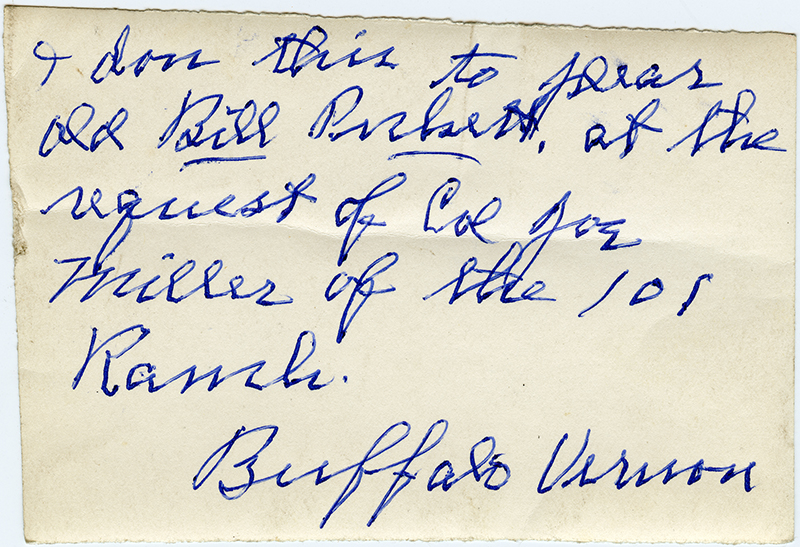 I don this to pleas
old Bill Pickett, at the
request of Col Joe
Miller of the 101
Ranch.
Buffalo Vernon